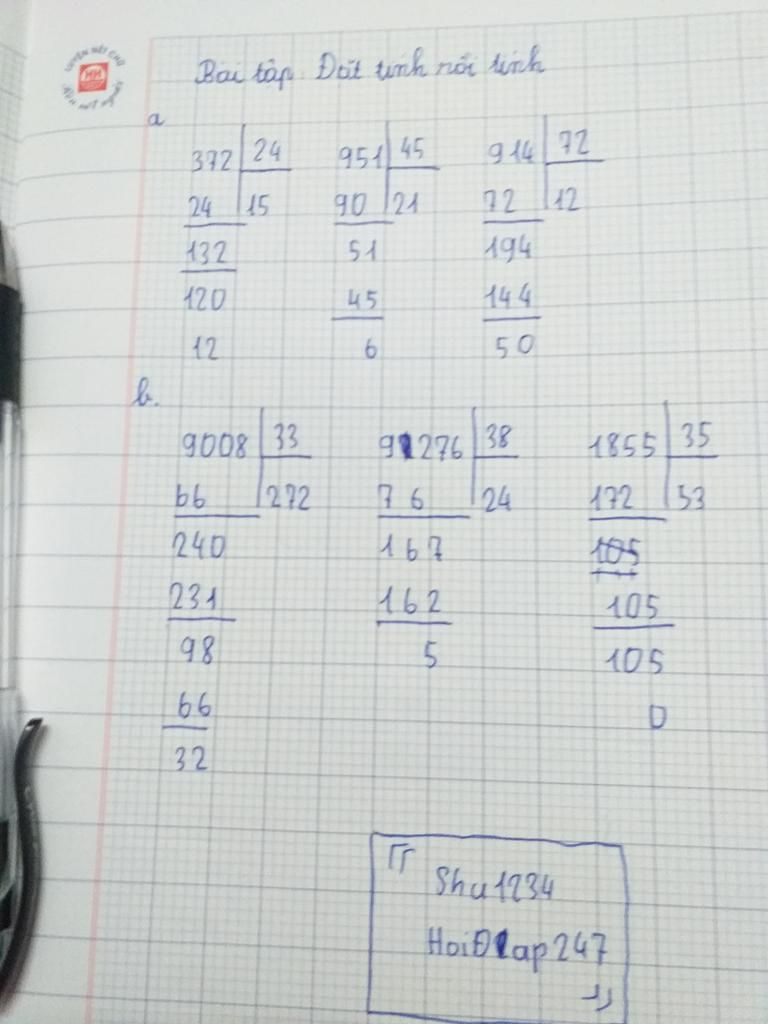 LUYỆN NÉT CHỮ
HH
Bài tập. Đặt tính rồi tính
a
372 24 951 45 914 72
24 15 90 21 72 12
132 51 194
120 45 144
12 6 50
b.
9008 33 91276 38 1855 35
66 272 7 6 24 172 53
240 167 105
231 162 105
98 5 105
66 0
32
Shu1234
HoiĐap247